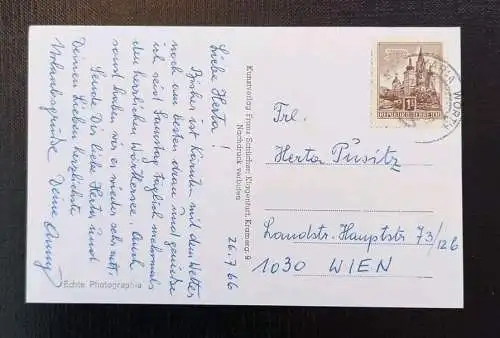 Liebe Herta!
Bisher ist Kärnten mit dem Wetter
noch am besten dran und genieße
ich seit Samstag täglich mehrmals
den herrlichen Wörthersee. Auch
sonst haben wir es wieder sehr nett.
Sende Dir liebe Herta und
Deinen Lieben herzlichste
Urlaubsgrüße Deine Anny
26.7.66
Echte Photographie
Kunstverlag Franz Schilcher, Klagenfurt,
Nachdruck verboten
REPUBLIK ÖSTERREICH
WÖRTH
Frl.
Herta Pusitz
Landstr. Hauptstr 73/12b
1030 WIEN